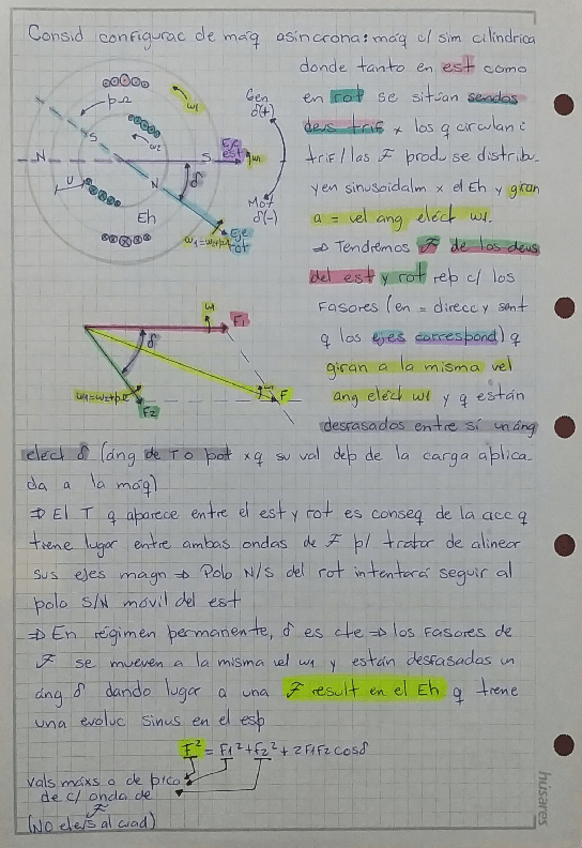 Consid configurac de máq asíncrona: máq c/ sim cilíndrica
donde tanto en est como
en rot se sitúan sendos
devs trif x los q circulan i
trif/las F produ se distribu-
yen sinusoidalm x el Eh y giran
a = vel ang eléct ω1.
⇒ Tendremos F de los devs
del est y rot rep c/ los
Fasores (en = direcc y sent
q los ejes correspond) q
giran a la misma vel
ang eléct ω1 y q están
desfasados entre sí un áng
eléct δ (áng de T o pot xq su val dep de la carga aplica-
da a la máq)
⇒ El T q aparece entre el est y rot es conseq de la acc q
tiene lugar entre ambas ondas de F p/ tratar de alinear
sus ejes magn ⇒ Polo N/S del rot intentará seguir al
polo S/N móvil del est
⇒ En régimen permanente, δ es cte ⇒ los Fasores de
F se mueven a la misma vel ω1 y están desfasados un
áng δ dando lugar a una F result en el Eh q tiene
una evoluc sinus en el esp
F² = F1² + F2² + 2F1F2 cosδ
vals máxs o de pico
de c/ onda de
F
(NO elevs al cuad)
pΩ
ω1
Gen
δ(+)
S
ω2
Eje
est
ω1
N
S
N
δ
U
Mot
δ(-)
Eh
ω1=ω2+pΩ
Eje
rot
ω1
F1
δ
F
ω1=ω2+pΩ
F2
husares